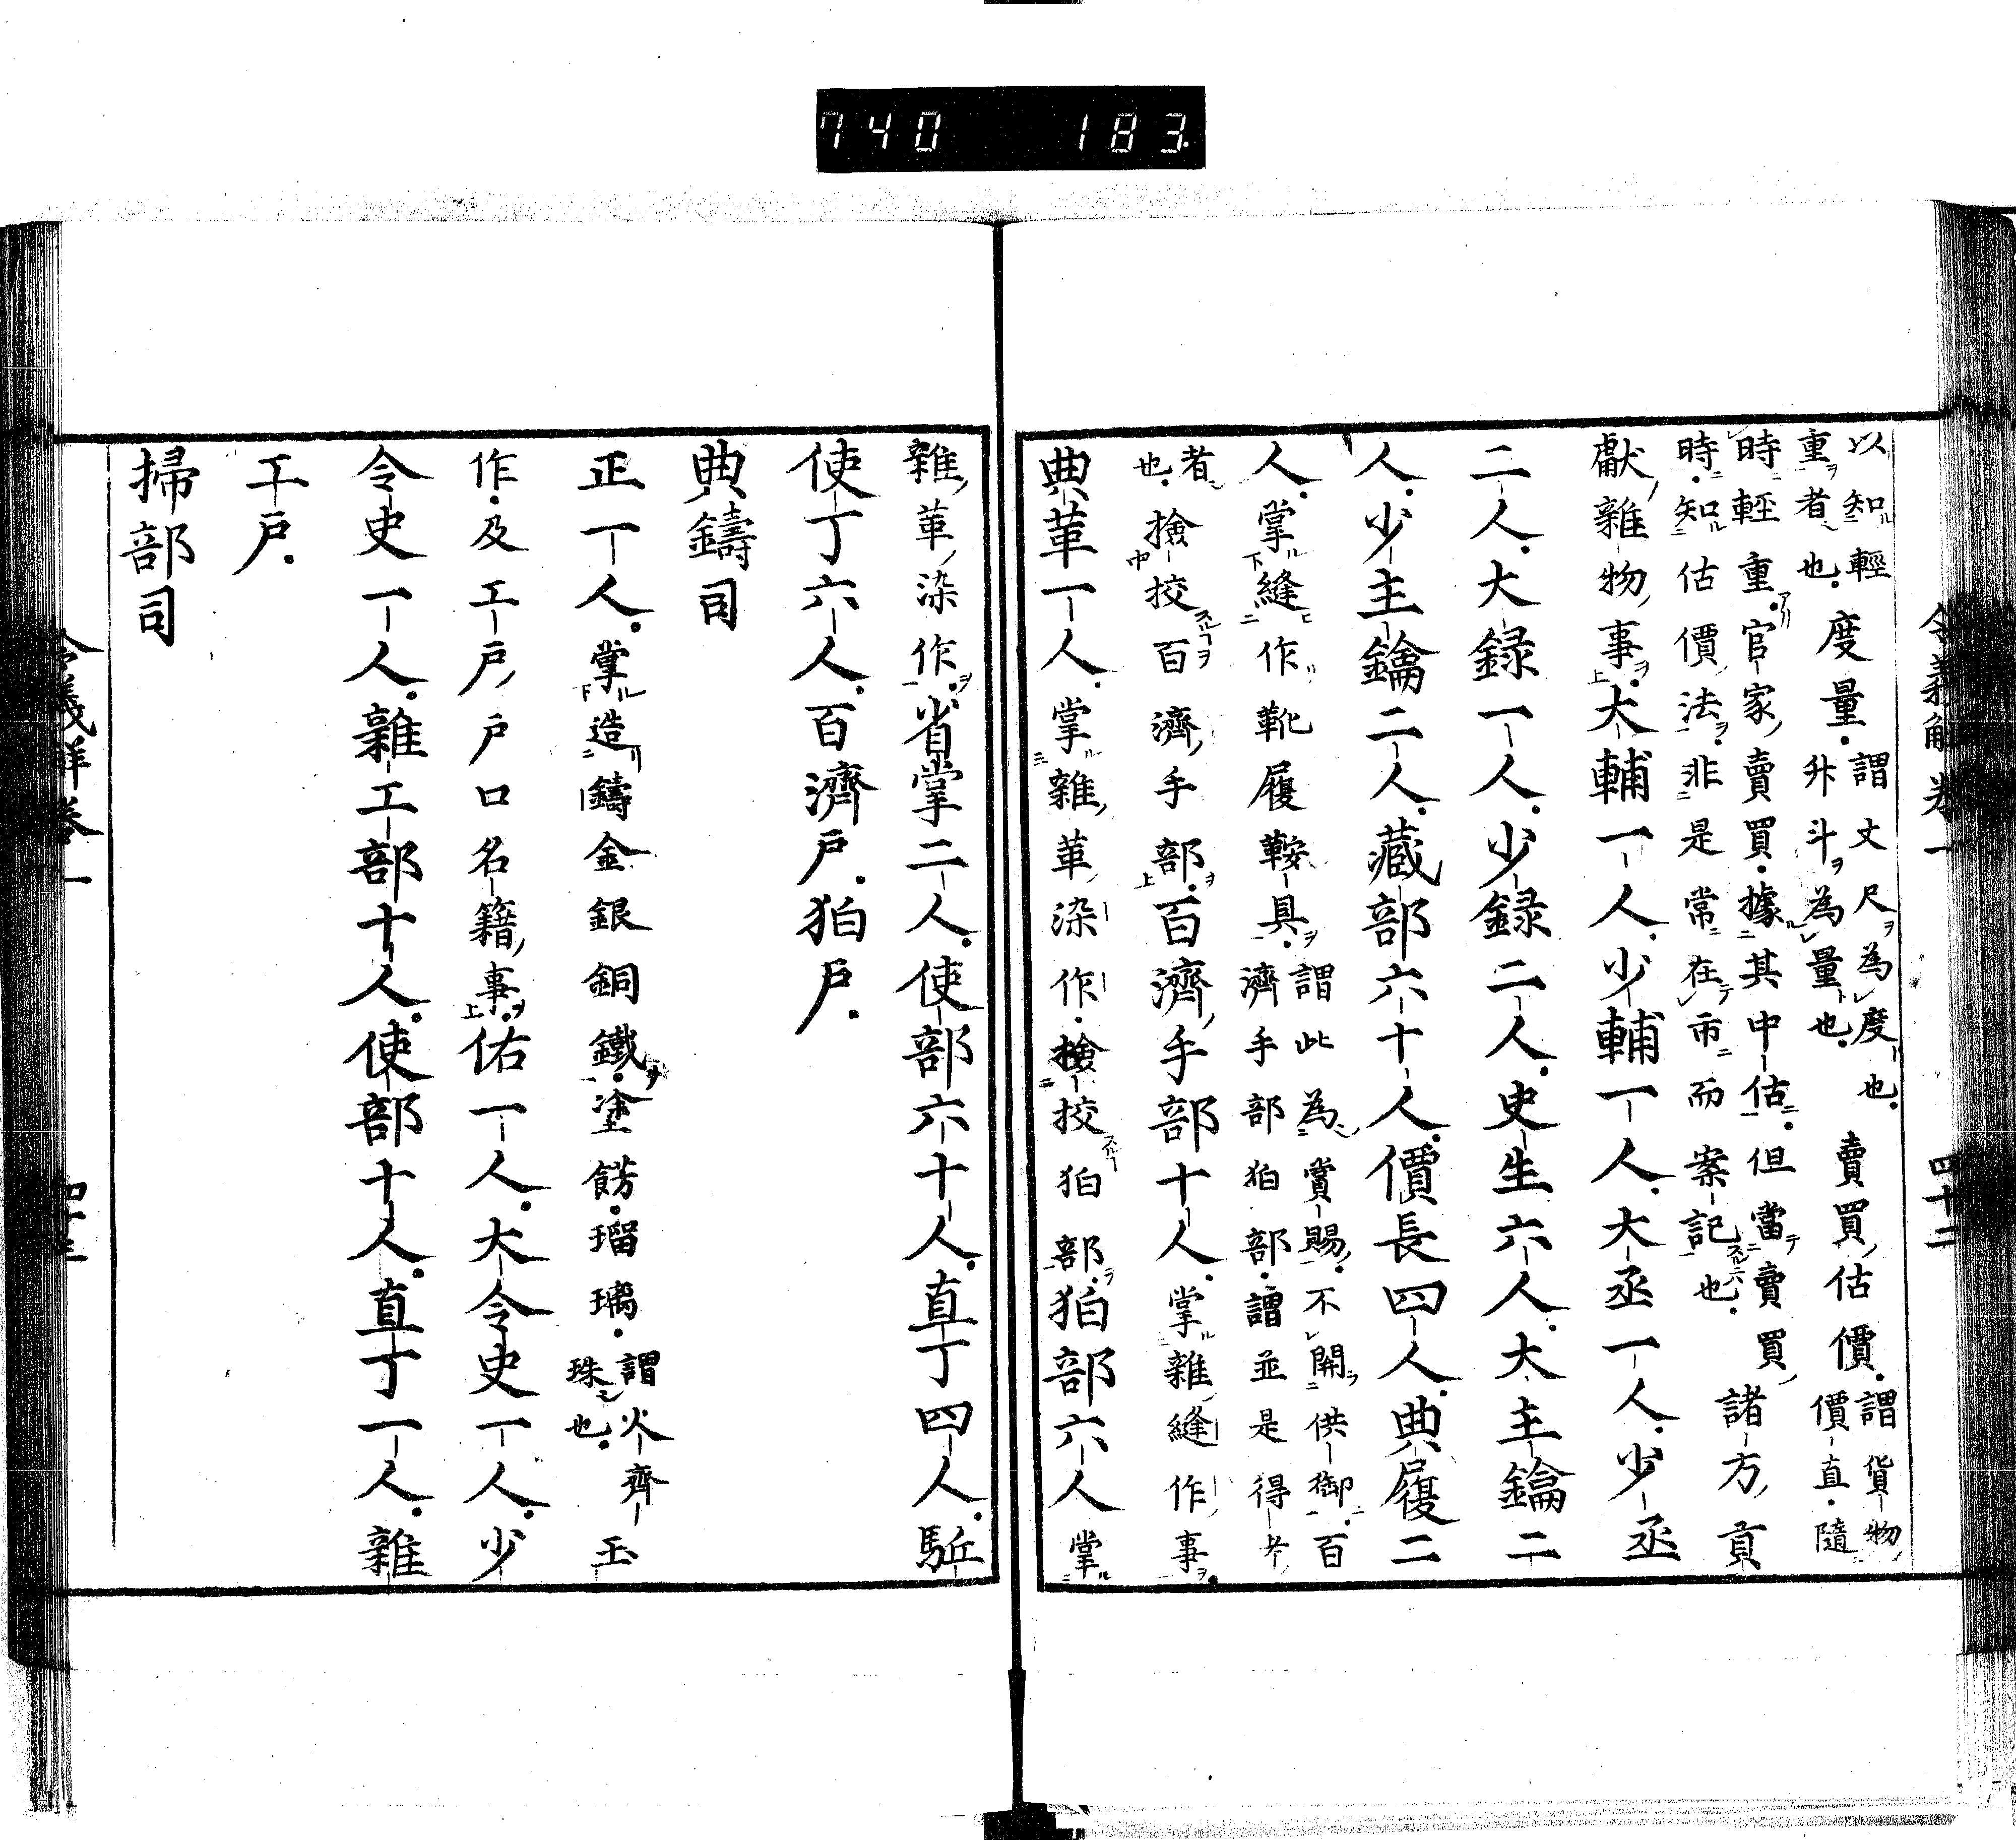 740 183
令義解卷一 四十二
以知輕
重者也
度量
謂丈尺為度也
升斗為量也
賣買估價
謂貨物
價直隨
時輕重官家賣買據其中估但當賣買
時知估價法非是常在市而案記也
諸方貢
獻雜物事大輔一人少輔一人大丞一人少丞
二人大録一人少録二人史生六人大主鑰二
人少主鑰二人藏部六十人價長四人典履二
人掌縫作靴履鞍具
謂此為賞賜不開供御百
濟手部狛部謂並是得考
者
也
撿挍百濟手部百濟手部十人掌雜縫作事
典革一人掌雜革染作撿挍狛部狛部六人掌
雜革染作省掌二人使部六十人直丁四人駈
使丁六人百濟戸狛戸
典鑄司
正一人掌造鑄金銀銅鐵塗餝瑠璃
謂火齊
珠也
玉
作及工戸戸口名籍事佑一人大令史一人少
令史一人雜工部十人使部十人直丁一人雜
工戸
掃部司
令義解卷一 四十三